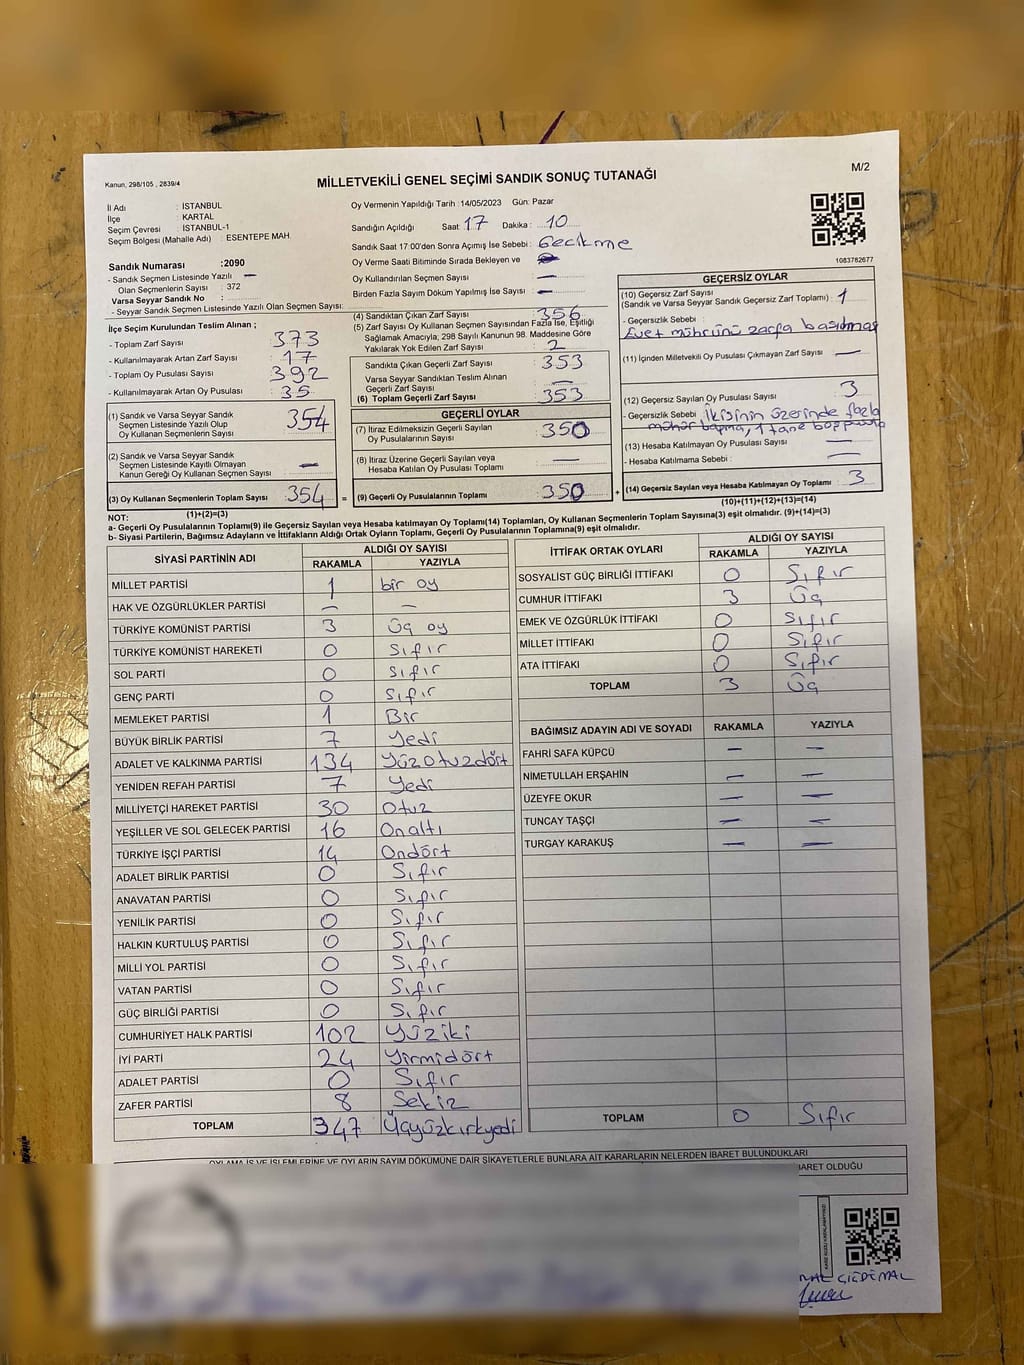 Kanun, 298/105 , 2839/4
M/2
MİLLETVEKİLİ GENEL SEÇİMİ SANDIK SONUÇ TUTANAĞI
İl Adı : İSTANBUL
İlçe : KARTAL
Seçim Çevresi : İSTANBUL-1
Seçim Bölgesi (Mahalle Adı) : ESENTEPE MAH.
Sandık Numarası :2090
- Sandık Seçmen Listesinde Yazılı —
Olan Seçmenlerin Sayısı : 372
Varsa Seyyar Sandık No :
- Seyyar Sandık Seçmen Listesinde Yazılı Olan Seçmen Sayısı:
Oy Vermenin Yapıldığı Tarih :14/05/2023 Gün: Pazar
Sandığın Açıldığı Saat 17 Dakika : 10
Sandık Saat 17:00'den Sonra Açımış İse Sebebi : Gecikme
Oy Verme Saati Bitiminde Sırada Bekleyen ve
Oy Kullandırılan Seçmen Sayısı : —
Birden Fazla Sayım Döküm Yapılmış İse Sayısı : —
1083782677
İlçe Seçim Kurulundan Teslim Alınan ;
- Toplam Zarf Sayısı : 373
- Kullanılmayarak Artan Zarf Sayısı : 17
- Toplam Oy Pusulası Sayısı : 392
- Kullanılmayarak Artan Oy Pusulası : 35
(1) Sandık ve Varsa Seyyar Sandık
Seçmen Listesinde Yazılı Olup
Oy Kullanan Seçmenlerin Sayısı 354
(2) Sandık ve Varsa Seyyar Sandık
Seçmen Listesinde Kayıtlı Olmayan
Kanun Gereği Oy Kullanan Seçmen Sayısı —
(3) Oy Kullanan Seçmenlerin Toplam Sayısı 354 =
(1)+(2)=(3)
(4) Sandıktan Çıkan Zarf Sayısı : 356
(5) Zarf Sayısı Oy Kullanan Seçmen Sayısından Fazla İse, Eşitliği
Sağlamak Amacıyla; 298 Sayılı Kanunun 98. Maddesine Göre
Yakılarak Yok Edilen Zarf Sayısı : 2
Sandıkta Çıkan Geçerli Zarf Sayısı : 353
Varsa Seyyar Sandıktan Teslim Alınan
Geçerli Zarf Sayısı : —
(6) Toplam Geçerli Zarf Sayısı : 353
GEÇERLİ OYLAR
(7) İtiraz Edilmeksizin Geçerli Sayılan
Oy Pusulalarının Sayısı : 350
(8) İtiraz Üzerine Geçerli Sayılan veya
Hesaba Katılan Oy Pusulası Toplamı : —
(9) Geçerli Oy Pusulalarının Toplamı : 350 +
GEÇERSİZ OYLAR
(10) Geçersiz Zarf Sayısı
(Sandık ve Varsa Seyyar Sandık Geçersiz Zarf Toplamı) : 1
- Geçersizlik Sebebi :
Evet mührünü zarfa basılması
(11) İçinden Milletvekili Oy Pusulası Çıkmayan Zarf Sayısı : —
(12) Geçersiz Sayılan Oy Pusulası Sayısı : 3
- Geçersizlik Sebebi : İkisinin üzerinde fazla
mühür 1 tane
(13) Hesaba Katılmayan Oy Pusulası Sayısı : —
- Hesaba Katılmama Sebebi : —
(14) Geçersiz Sayılan veya Hesaba Katılmayan Oy Toplamı : 3
(10)+(11)+(12)+(13)=(14)
NOT:
a- Geçerli Oy Pusulalarının Toplamı(9) ile Geçersiz Sayılan veya Hesaba katılmayan Oy Toplamı(14) Toplamları, Oy Kullanan Seçmenlerin Toplam Sayısına(3) eşit olmalıdır. (9)+(14)=(3)
b- Siyasi Partilerin, Bağımsız Adayların ve İttifakların Aldığı Ortak Oyların Toplamı, Geçerli Oy Pusulalarının Toplamına(9) eşit olmalıdır.
SİYASİ PARTİNİN ADI ALDIĞI OY SAYISI
RAKAMLA YAZIYLA
MİLLET PARTİSİ 1 bir oy
HAK VE ÖZGÜRLÜKLER PARTİSİ — —
TÜRKİYE KOMÜNİST PARTİSİ 3 üç oy
TÜRKİYE KOMÜNİST HAREKETİ 0 Sıfır
SOL PARTİ 0 Sıfır
GENÇ PARTİ 0 Sıfır
MEMLEKET PARTİSİ 1 Bir
BÜYÜK BİRLİK PARTİSİ 7 Yedi
ADALET VE KALKINMA PARTİSİ 134 Yüzotuzdört
YENİDEN REFAH PARTİSİ 7 Yedi
MİLLİYETÇİ HAREKET PARTİSİ 30 Otuz
YEŞİLLER VE SOL GELECEK PARTİSİ 16 Onaltı
TÜRKİYE İŞÇİ PARTİSİ 14 Ondört
ADALET BİRLİK PARTİSİ 0 Sıfır
ANAVATAN PARTİSİ 0 Sıfır
YENİLİK PARTİSİ 0 Sıfır
HALKIN KURTULUŞ PARTİSİ 0 Sıfır
MİLLİ YOL PARTİSİ 0 Sıfır
VATAN PARTİSİ 0 Sıfır
GÜÇ BİRLİĞİ PARTİSİ 0 Sıfır
CUMHURİYET HALK PARTİSİ 102 Yüziki
İYİ PARTİ 24 Yirmidört
ADALET PARTİSİ 0 Sıfır
ZAFER PARTİSİ 8 Sekiz
TOPLAM 347 Üçyüzkırkyedi
İTTİFAK ORTAK OYLARI ALDIĞI OY SAYISI
RAKAMLA YAZIYLA
SOSYALİST GÜÇ BİRLİĞİ İTTİFAKI 0 Sıfır
CUMHUR İTTİFAKI 3 Üç
EMEK VE ÖZGÜRLÜK İTTİFAKI 0 Sıfır
MİLLET İTTİFAKI 0 Sıfır
ATA İTTİFAKI 0 Sıfır
TOPLAM 3 Üç
BAĞIMSIZ ADAYIN ADI VE SOYADI RAKAMLA YAZIYLA
FAHRİ SAFA KÜPCÜ — —
NİMETULLAH ERŞAHİN — —
ÜZEYFE OKUR — —
TUNCAY TAŞÇI — —
TURGAY KARAKUŞ — —
TOPLAM 0 Sıfır
OYLAMA İŞ VE İŞLEMLERİNE VE OYLARIN SAYIM DÖKÜMÜNE DAİR ŞİKAYETLERLE BUNLARA AİT KARARLARIN NELERDEN İBARET BULUNDUKLARI
BARET OLDUĞU